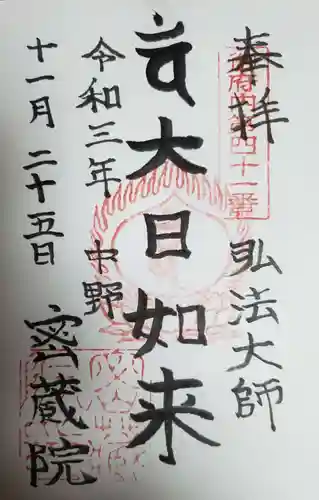 奉拝
弘法大師
大日如来
令和三年 中野
十一月二十五日
密蔵院